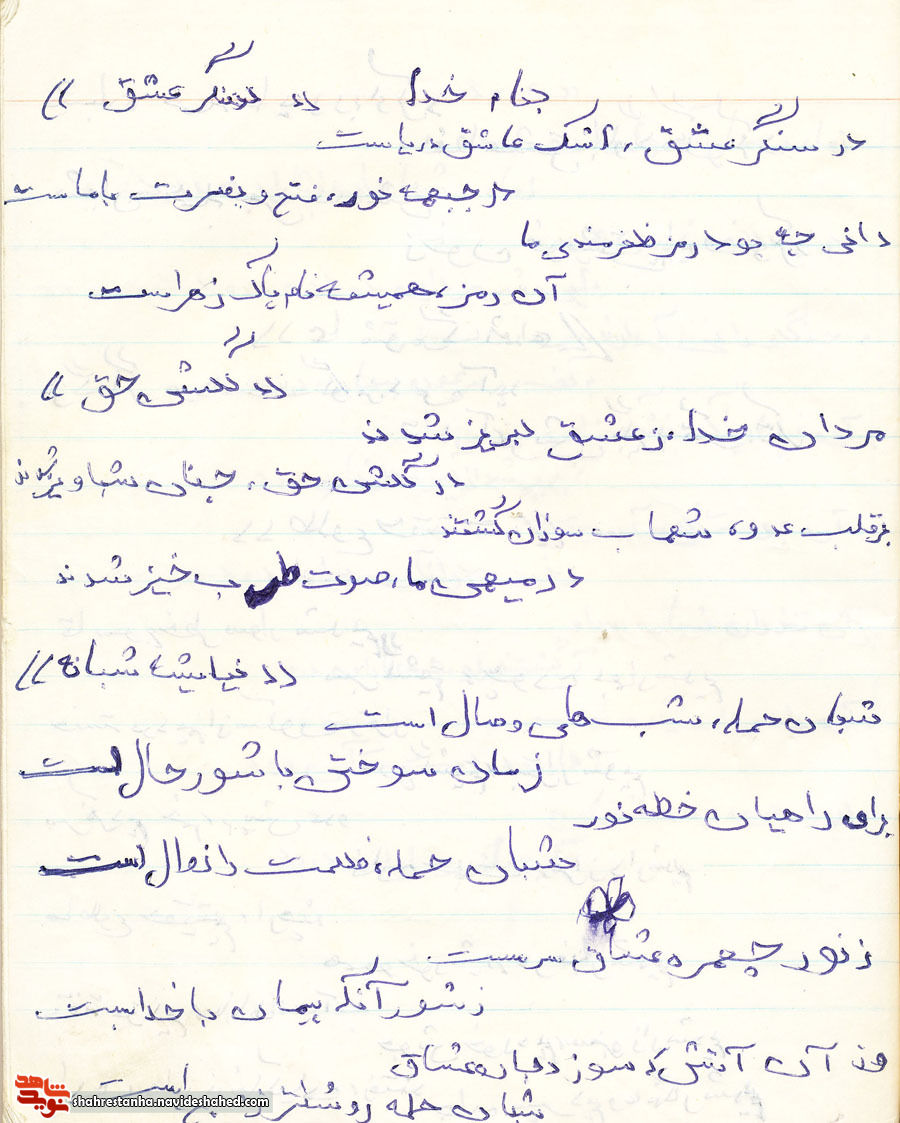 بنام خدا « سنگر عشق »
در سنگر عشق، اشک عاشق دریاست
در جبهه نور، فتح و نصرت با ماست
دانی چه بود رمز ظفرمندی ما
آن رمز، همیشه نام پاک زهراست
« گلشن حق »
مردان خدا، ز عشق لبریز شدند
در گلشن حق، چنان شباویز شدند
بر قلب عدو، شهاب سوزان گشتند
در میهن ما، صوت طرب خیز شدند
« نیایش شبانه »
شبان حمله، شب های وصال است
زمان سوختن با شور حال است
برای راهیان خطه نور
شبان حمله، ظلمت را زوال است
ز نور چهره عشاق سرمست
ز شور آنکه پیمان با خدا بست
آن آتش که سوزد جان عشاق
شبان حمله روشنتر است
شاهد
نوید
shahrestanha.navideshahed.com